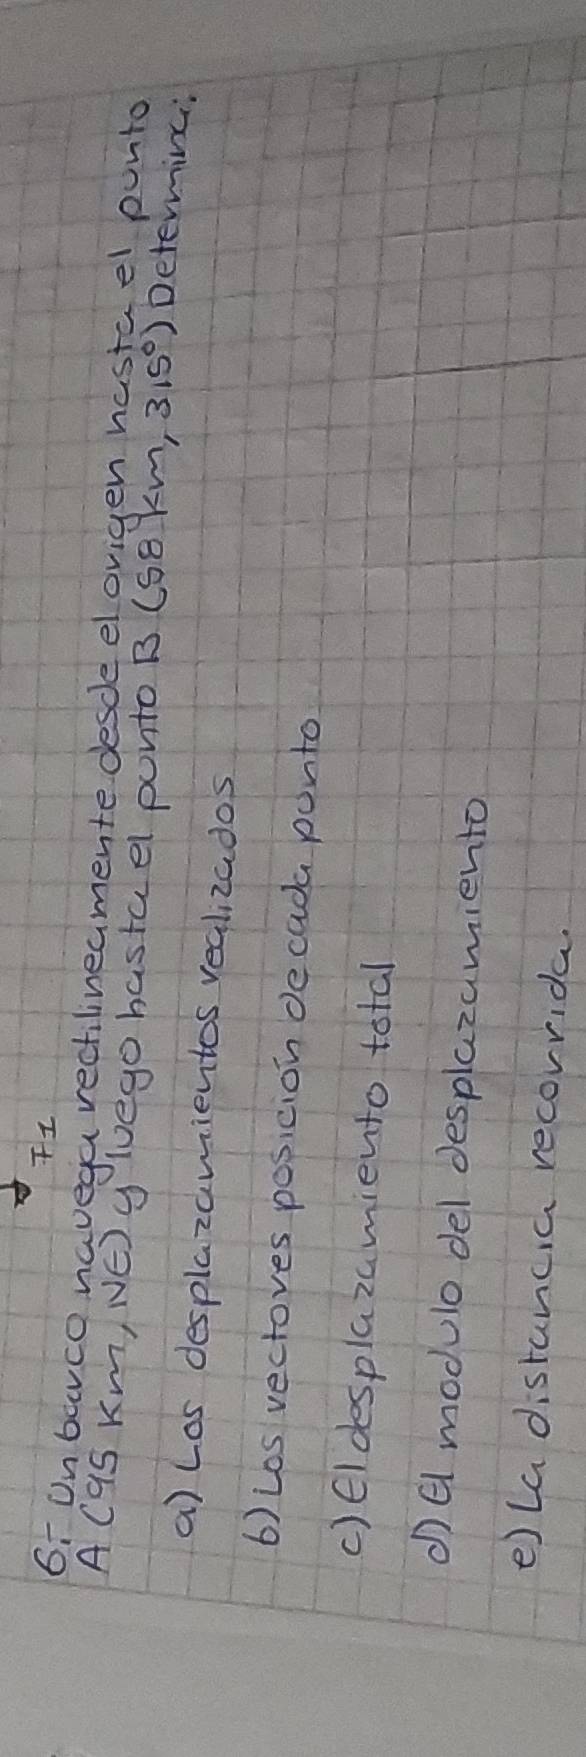 F1
6.- Un barco navega rectilineamente desde el origen hasta el punto
A (95 Km, NE) y luego hasta el punto B (58 Km, 315°) Determina:
a) Los desplazamientos realizados
b) Los vectores posición de cada punto
c) El desplazamiento total
d) El modulo del desplazamiento
e) La distancia recorrida.